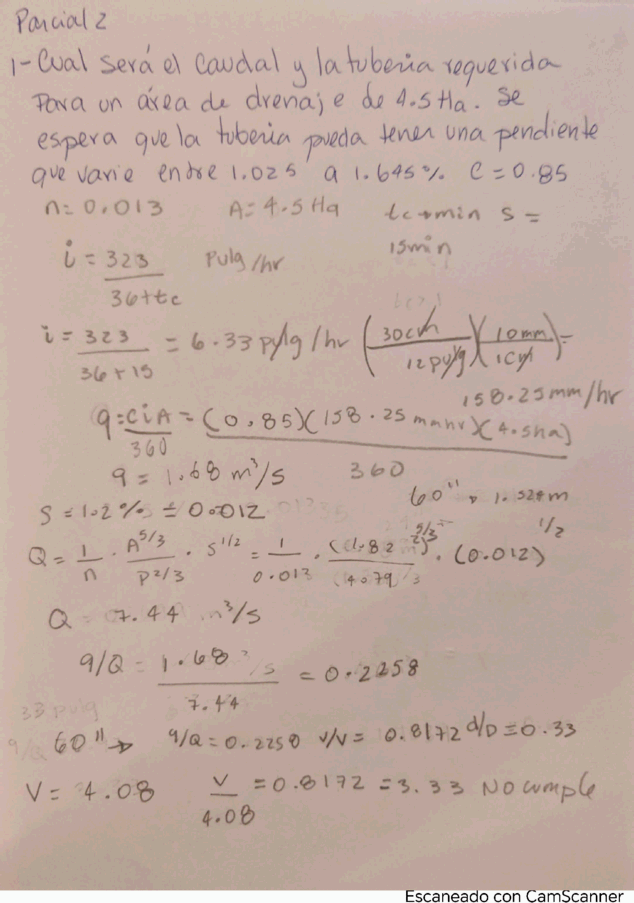 Parcial 2
1- Cual será el caudal y la tuberia requerida
Para un área de drenaje de 4.5 Ha. Se
espera que la tuberia pueda tener una pendiente
que varie entre 1.025 a 1.645% C = 0.85
n = 0.013 A = 4.5 Ha tc → min S =
15min
i = 323 / 36+tc Pulg/hr
i = 323 / 36+15 = 6.33 pulg/hr (30cm / 12pulg)(10mm / 1cm) =
158.25 mm/hr
q = CiA / 360 = (0.85)(158.25 mm/hr)(4.5ha) / 360
q = 1.68 m³/s
60" → 1.524m
S = 1.2% = 0.012
Q = 1/n · A^5/3 / P^2/3 · S^1/2 = 1/0.013 · (1.82)^5/3 / (4.79)^2/3 · (0.012)^1/2
Q = 7.44 m³/s
q/Q = 1.68 / 7.44 = 0.2258
33 pulg
q/Q 60" → q/Q = 0.2258 v/V = 0.8172 d/D = 0.33
V = 4.08 V / 4.08 = 0.8172 = 3.33 No cumple
Escaneado con CamScanner